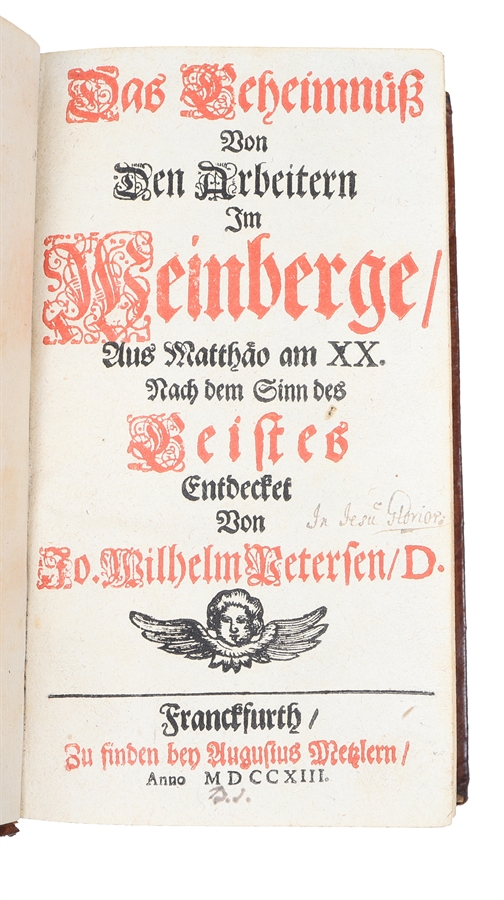 Das Geheimnüß
Von
Den Arbeitern
Im
Weinberge/
Aus Matthäo am XX.
Nach dem Sinn des
Geistes
Entdecket
Von
In Jesu Glorior.
Jo. Wilhelm Petersen/ D.
Franckfurth/
Zu finden bey Augustus Metzlern/
Anno MDCCXIII.